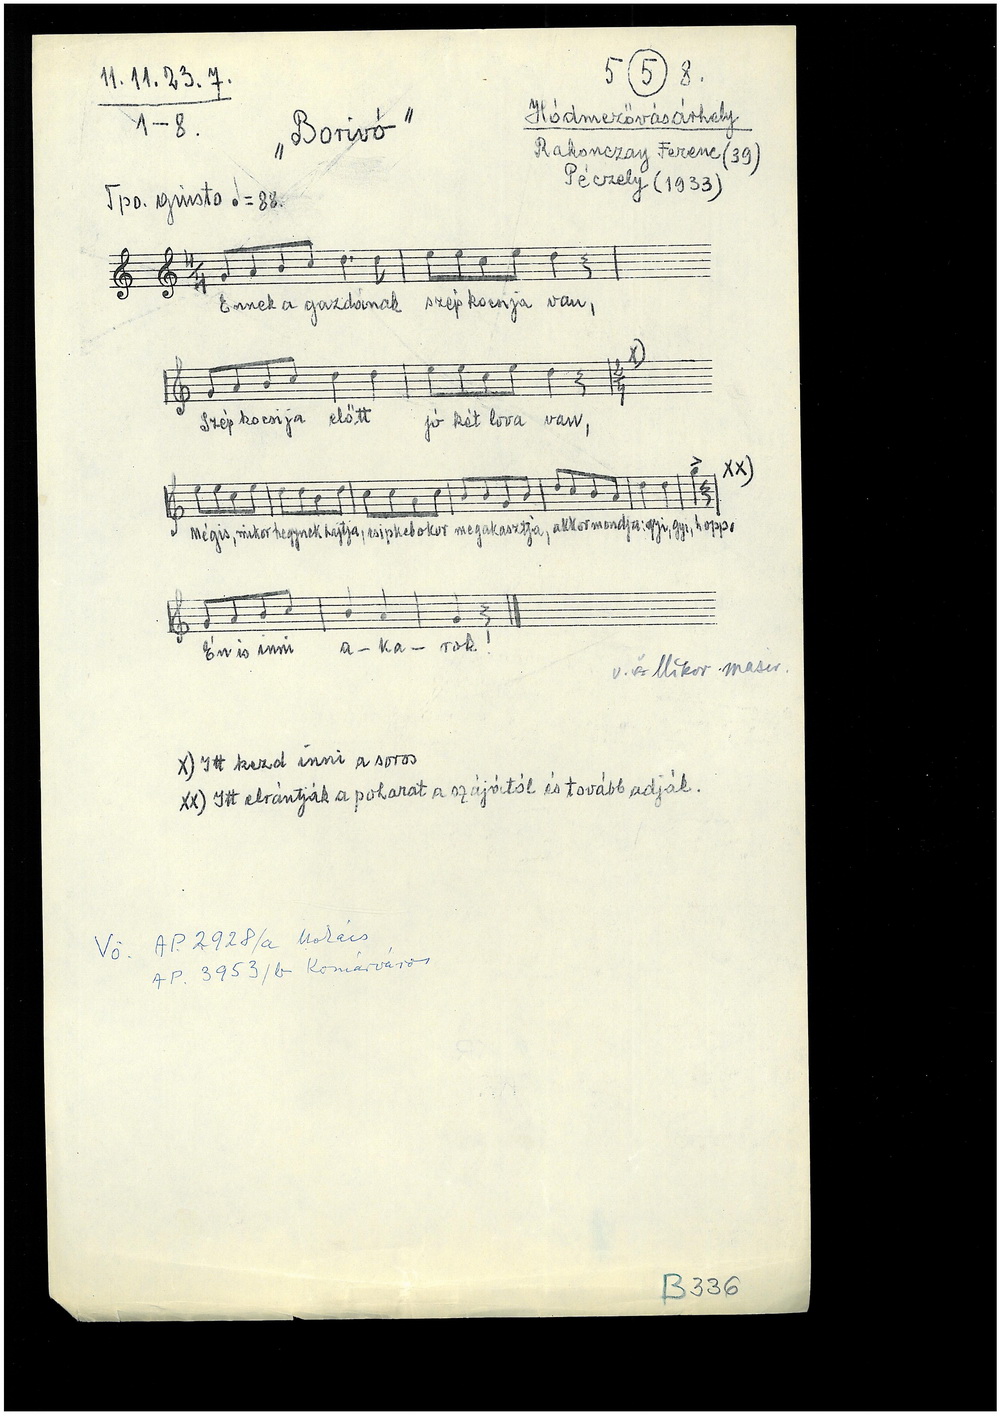 11. 11. 23. 7.
1-8.
5 5 8.
„Borivó"
Hódmezővásárhely
Rakonczay Ferenc (39)
Péczely (1933)
Tpo. giusto = 88.
4/4
Ennek a gazdának szép kocsija van,
Szép kocsija előtt jó két lova van,
x)
xx)
Mégis, mikor hegynek hajtja, csipkebokor megakasztja, akkor mondja: gyi, gyi, hopp.
Én is inni a-ka-rok!
Mikor masir.
x) Itt kezd inni a soros
xx) Itt elrántják a poharat a szájától és tovább adják.
Vö. AP. 2928/a
AP. 3953/b Komárváros
B336